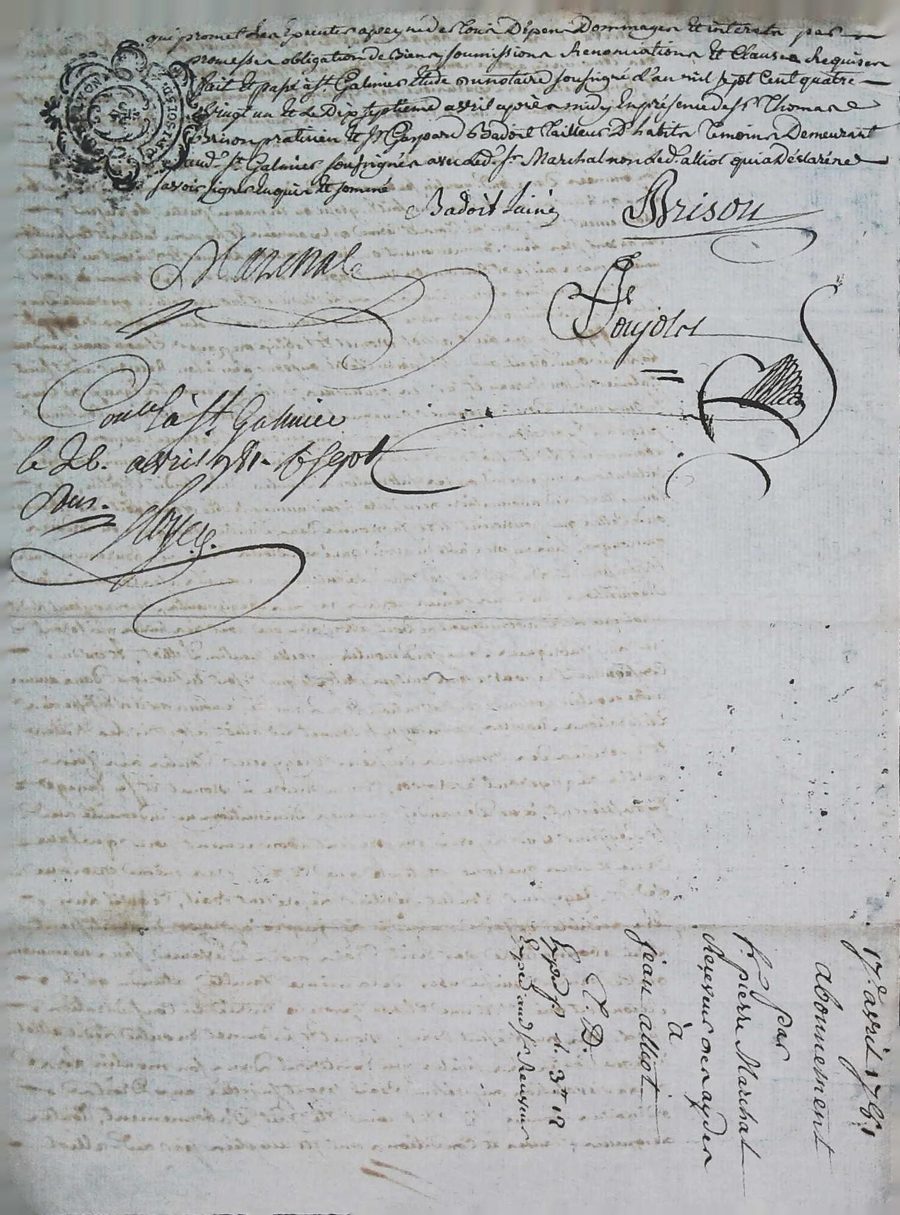 qui promet d'en Executer a peyne de tous Dépens Dommages Et interets par
promesses obligation de Biens soumissions Renonciations Et Clauses Requises
fait et passé a St Galmier Etude du notaire soussigné L'an mil sept Cent quatre
vingt un Et Le Dix septieme avril après midy En présence de sr Thomas
Brison praticien Et sr Gaspard Badoit Tailleur D'habits Temoins Demeurant
aud. St Galmier soussignés avec led. sr Marchal non led. alliot qui a Déclaré ne
savoir signer Enquis Et sommé
Badoit lainé
Brison
Marchal
Ponjolas
Con.lé à St Galmier
le 26. avril 1781.
Sous.
17e avril 1781
abonnement
par
sr pierre Marchal
Receveur des aydes
à
jean alliot
C. D.
Exped.
Exped. aud. sr Receveur